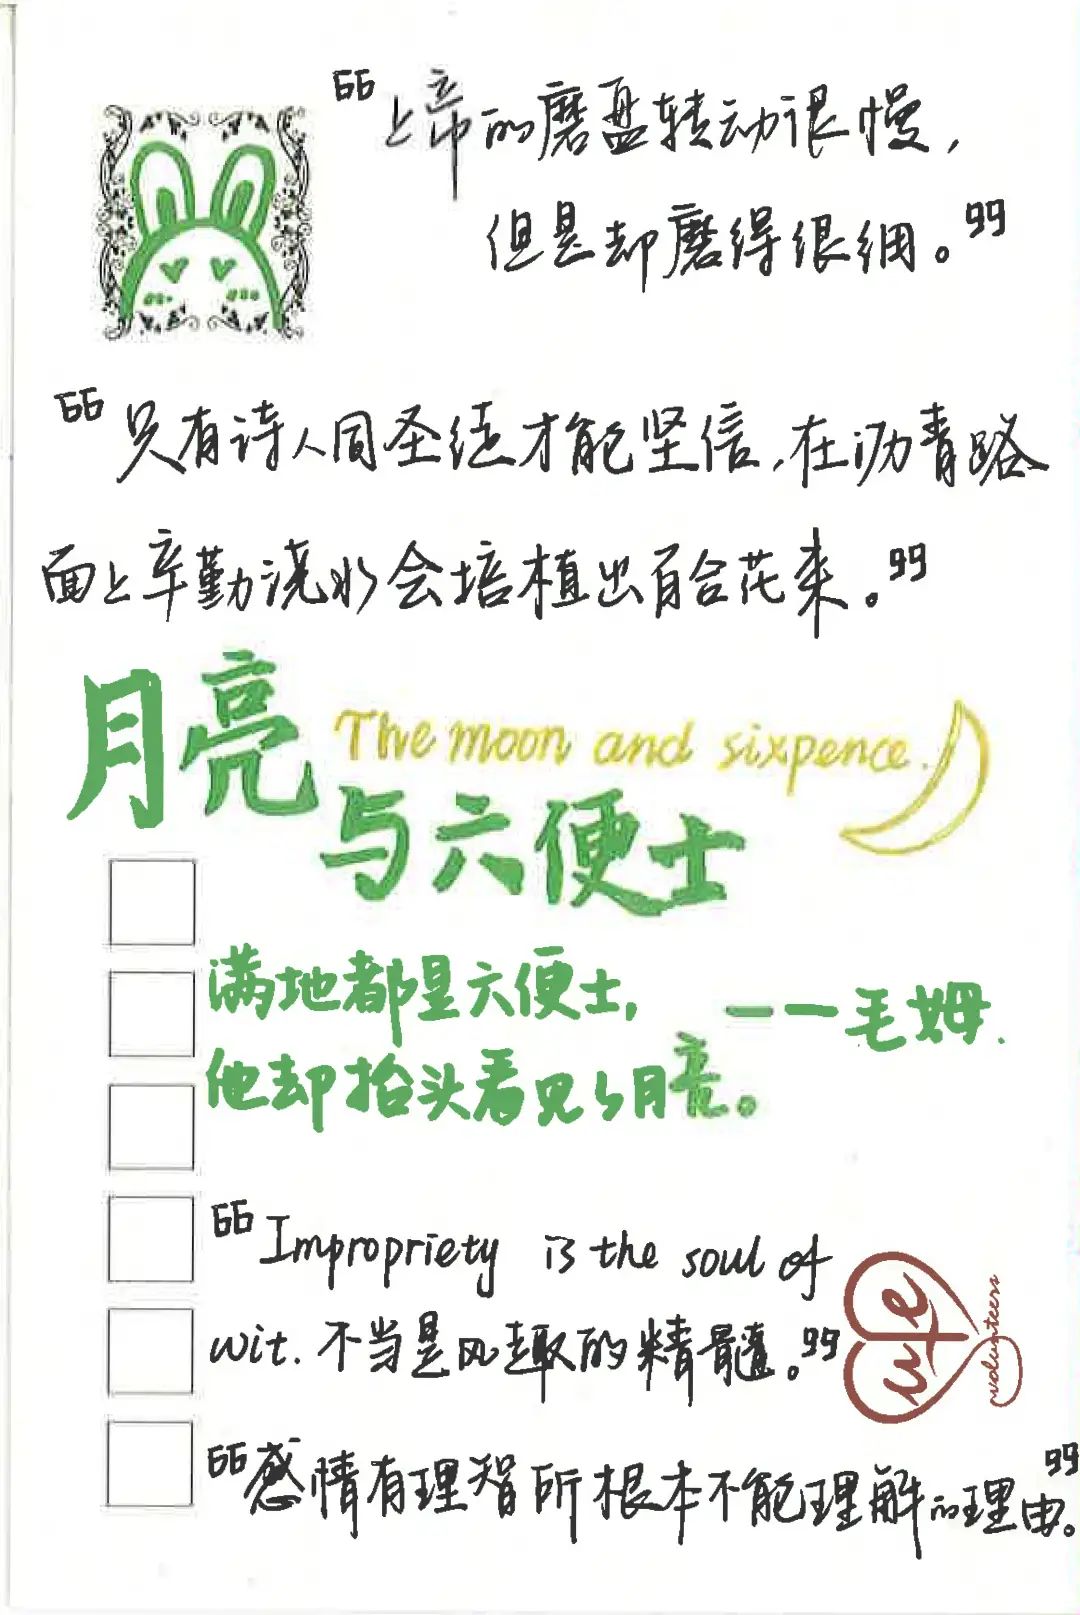 “上帝的磨盘转动很慢,
但是却磨得很细。”
“只有诗人同圣徒才能坚信,在沥青路
面上辛勤浇水会培植出百合花来。”
月亮
The moon and sixpence.
与六便士
满地都是六便士,
——毛姆.
他却抬头看见了月亮。
“Impropriety is the soul of
wit. 不当是风趣的精髓。”
ufe
volunteers
“感情有理智所根本不能理解的理由。”